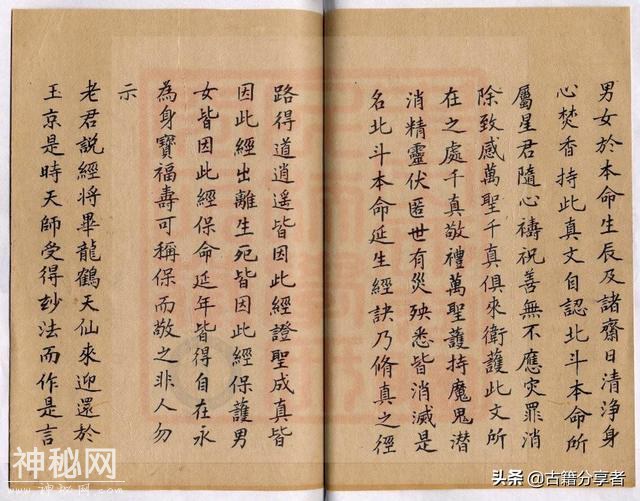 男女於本命生辰及諸齋日清淨身
心焚香持此真文自認北斗本命所
屬星君隨心禱祝善無不應灾罪消
除致感萬聖千真俱來衛護此文所
在之處千真敬禮萬聖護持魔鬼潛
消精靈伏匿世有災殃悉皆消滅是
名北斗本命延生經訣乃脩真之徑
路得道逍遥皆因此經證聖成真皆
因此經出離生死皆因此經保護男
女皆因此經保命延年皆得自在永
為身寶福壽可稱保而敬之非人勿
示
老君説經將畢龍鶴天仙來迎還於
玉京是時天師受得玅法而作是言
神秘网
头条 @古籍分享者